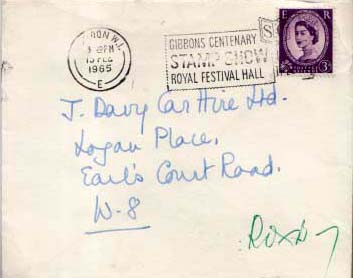 LONDON W.1.
PM
15 FEB
1965
E
GIBBONS CENTENARY
STAMP SHOW
ROYAL FESTIVAL HALL
S
E R
3D
J. Davy Car Hire Ltd.
Logan Place,
Earl's Court Road.
W-8